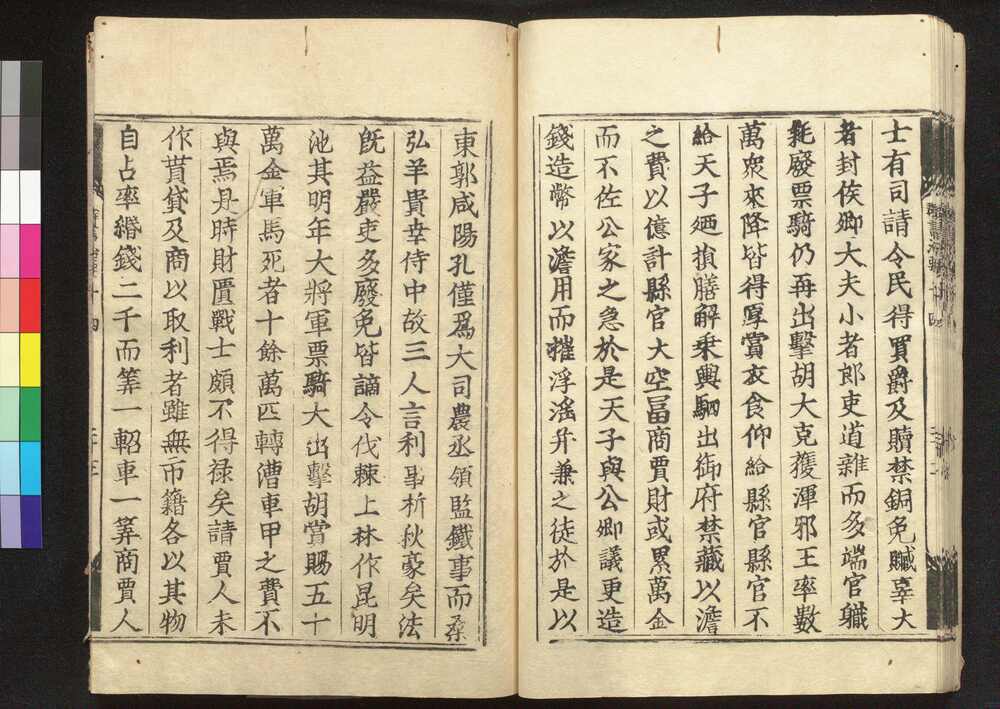 士有司請令民得買爵及贖禁錮免贓辠大
者封侯卿大夫小者郎吏道雜而多端官職
耗廢票騎仍再出擊胡大克獲渾邪王率數
萬衆來降皆得厚賞衣食仰給縣官縣官不
給天子廼損膳解乗輿駟出御府禁藏以澹
之費以億計縣官大空冨商賈財或累萬金
而不佐公家之急於是天子與公卿議更造
錢造幣以澹用而摧浮滛并兼之徒於是以
東郭咸陽孔僅爲大司農丞領監鐵事而桑
弘羊貴幸侍中故三人言利事析秋豪矣法
旣益嚴吏多廢免皆謫令伐棘上林作昆明
池其明年大將軍票騎大出擊胡賞賜五十
萬金軍馬死者十餘萬匹轉漕車甲之費不
與焉是時財匱戰士頗不得禄矣請賈人未
作貰貸及商以取利者雖無市籍各以其物
自占率緡錢二千而筭一軺車一筭商賈人
十四